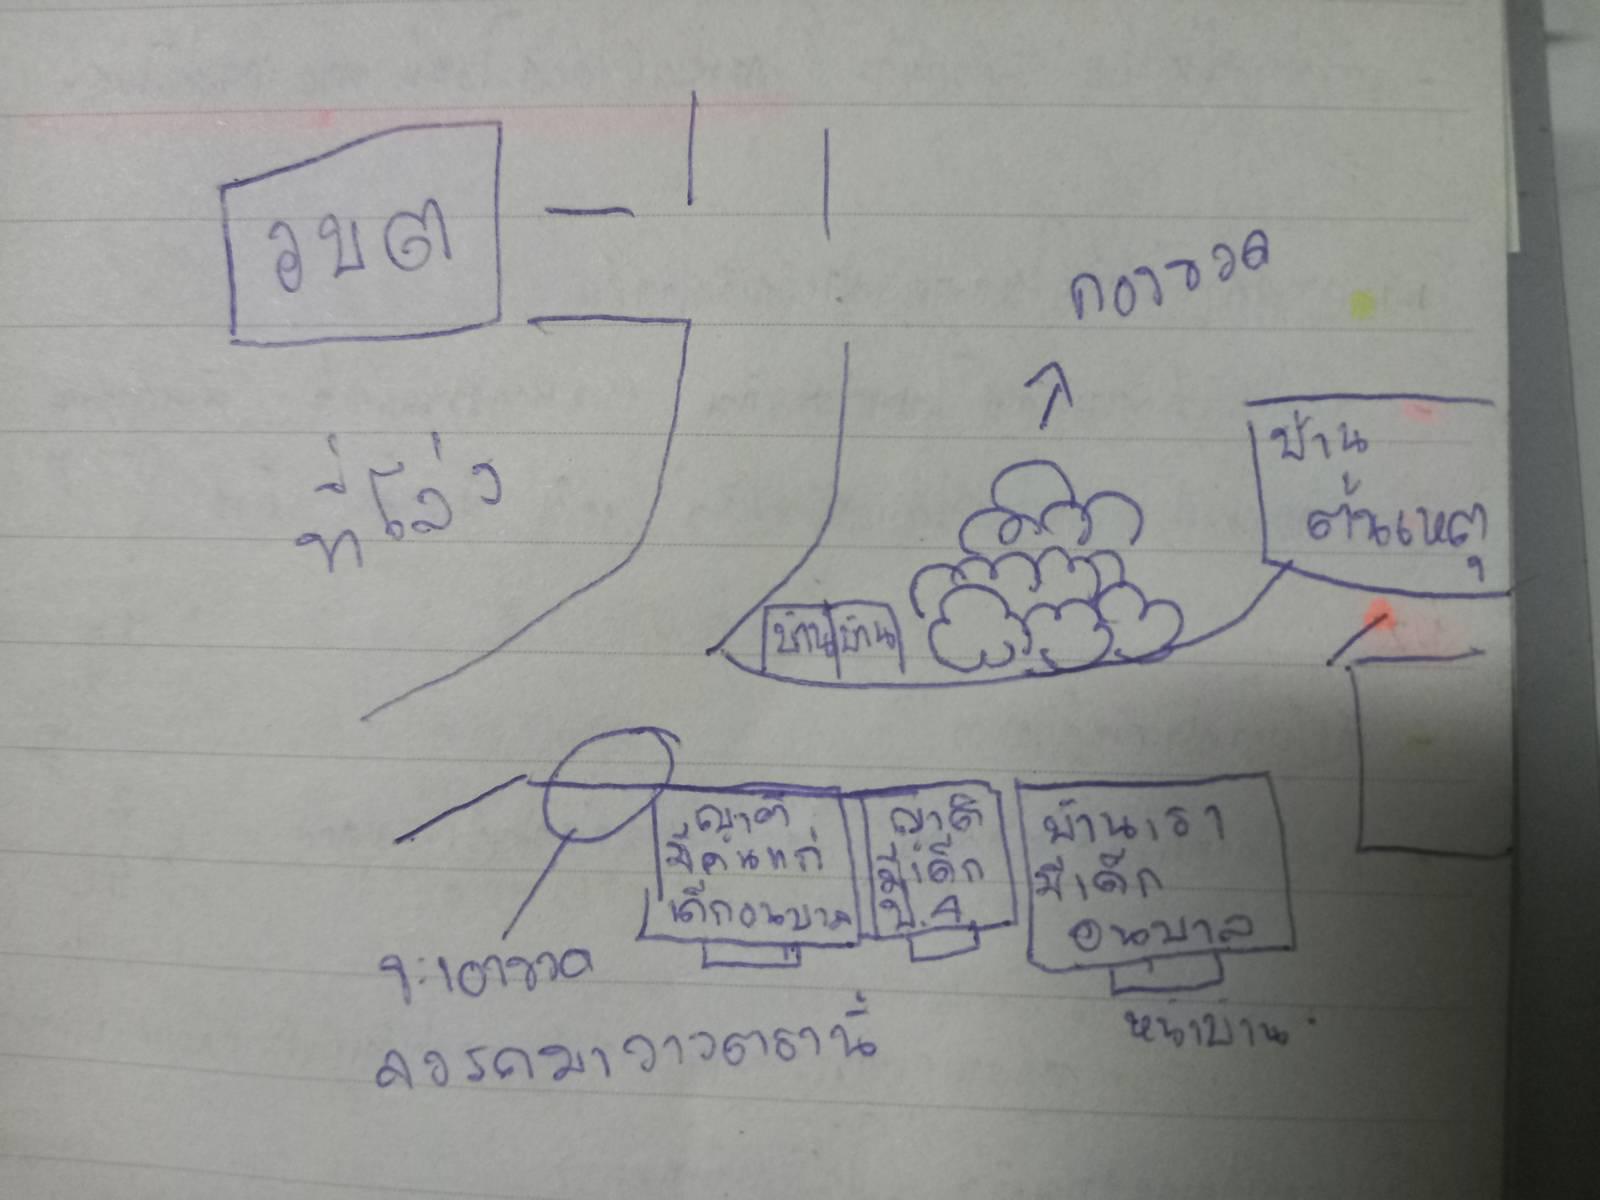 อบต
กองขวด
ที่โล่ง
บ้าน
ต้นเหตุ
บ้าน บ้าน
ญาติ
มีคนแก่
เด็กอนุบาล
ญาติ
มีเด็ก
ป.4
บ้านเรา
มีเด็ก
อนุบาล
หน้าบ้าน
จะเอาขวด
ลงรถมาวางตรงนี้